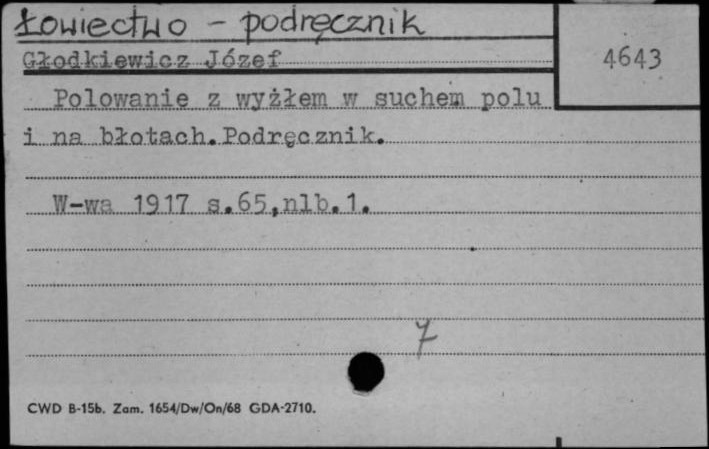 Łowiectwo - podręcznik
4643
Głodkiewicz Józef
Polowanie z wyżłem w suchem polu
i na błotach.Podręcznik.
W-wa 1917 s.65,nlb.1.
7
CWD B-15b. Zam. 1654/Dw/On/68 GDA-2710.